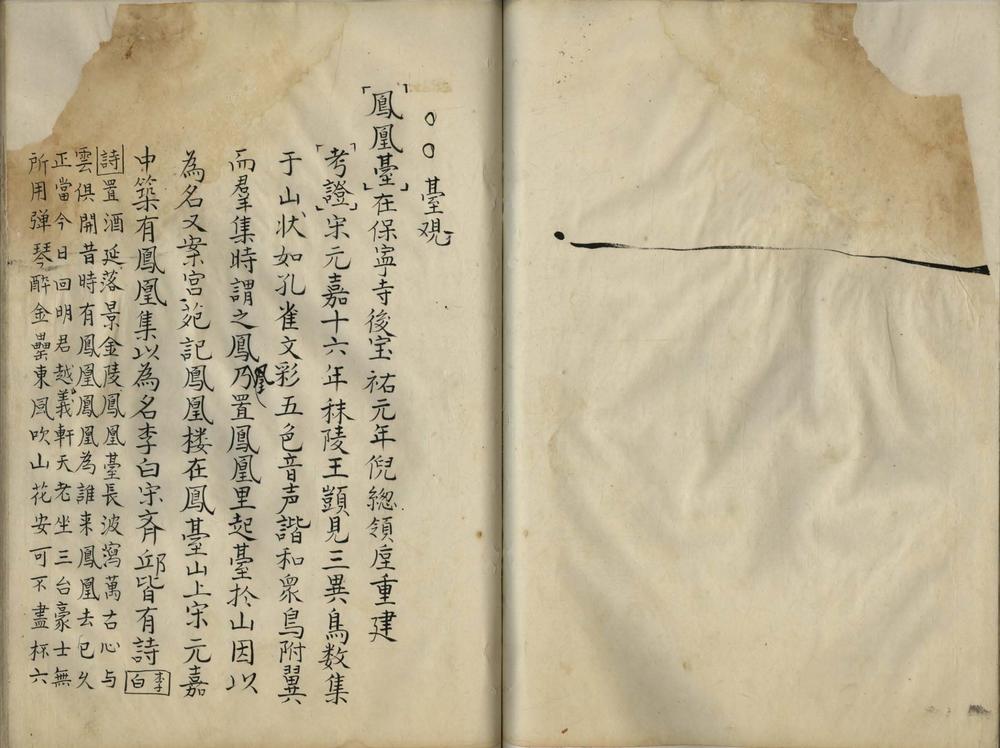 ○○臺观
「鳳凰臺」在保寧寺後宝祐元年倪總領垕重建
「考證」宋元嘉十六年秣陵王顗見三異鳥数集
于山状如孔雀文彩五色音声諧和衆鳥附翼
而羣集時謂之鳳凰乃置鳳凰里起臺於山因以
為名又案宫苑記鳳凰楼在鳳臺山上宋元嘉
中築有鳳凰集以為名李白宋齐邱皆有詩李白
詩置酒延落景金陵鳳凰臺長波瀉萬古心与
雲俱開昔時有鳳凰鳳凰為誰来鳳凰去已久
正當今日回明君越羲軒天老坐三台豪士無
所用弹琴酔金罍東風吹山花安可不盡杯六